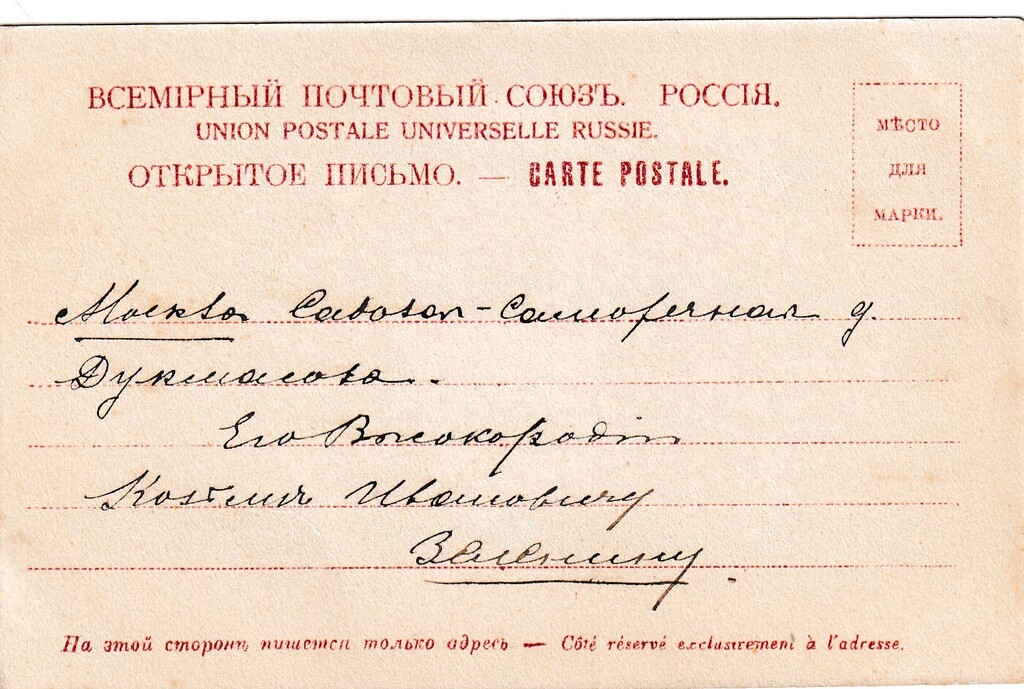 ВСЕМІРНЫЙ ПОЧТОВЫЙ СОЮЗЪ. РОССІЯ.
UNION POSTALE UNIVERSELLE RUSSIE.
ОТКРЫТОЕ ПИСЬМО. — CARTE POSTALE.
МѢСТО
ДЛЯ
МАРКИ.
Москва Садовая-Самотечная д.
Дукмасова.
Его Высокородію
Ивановичу
Зеленину.
На этой сторонѣ пишется только адресъ — Côté réservé exclusivement à l'adresse.